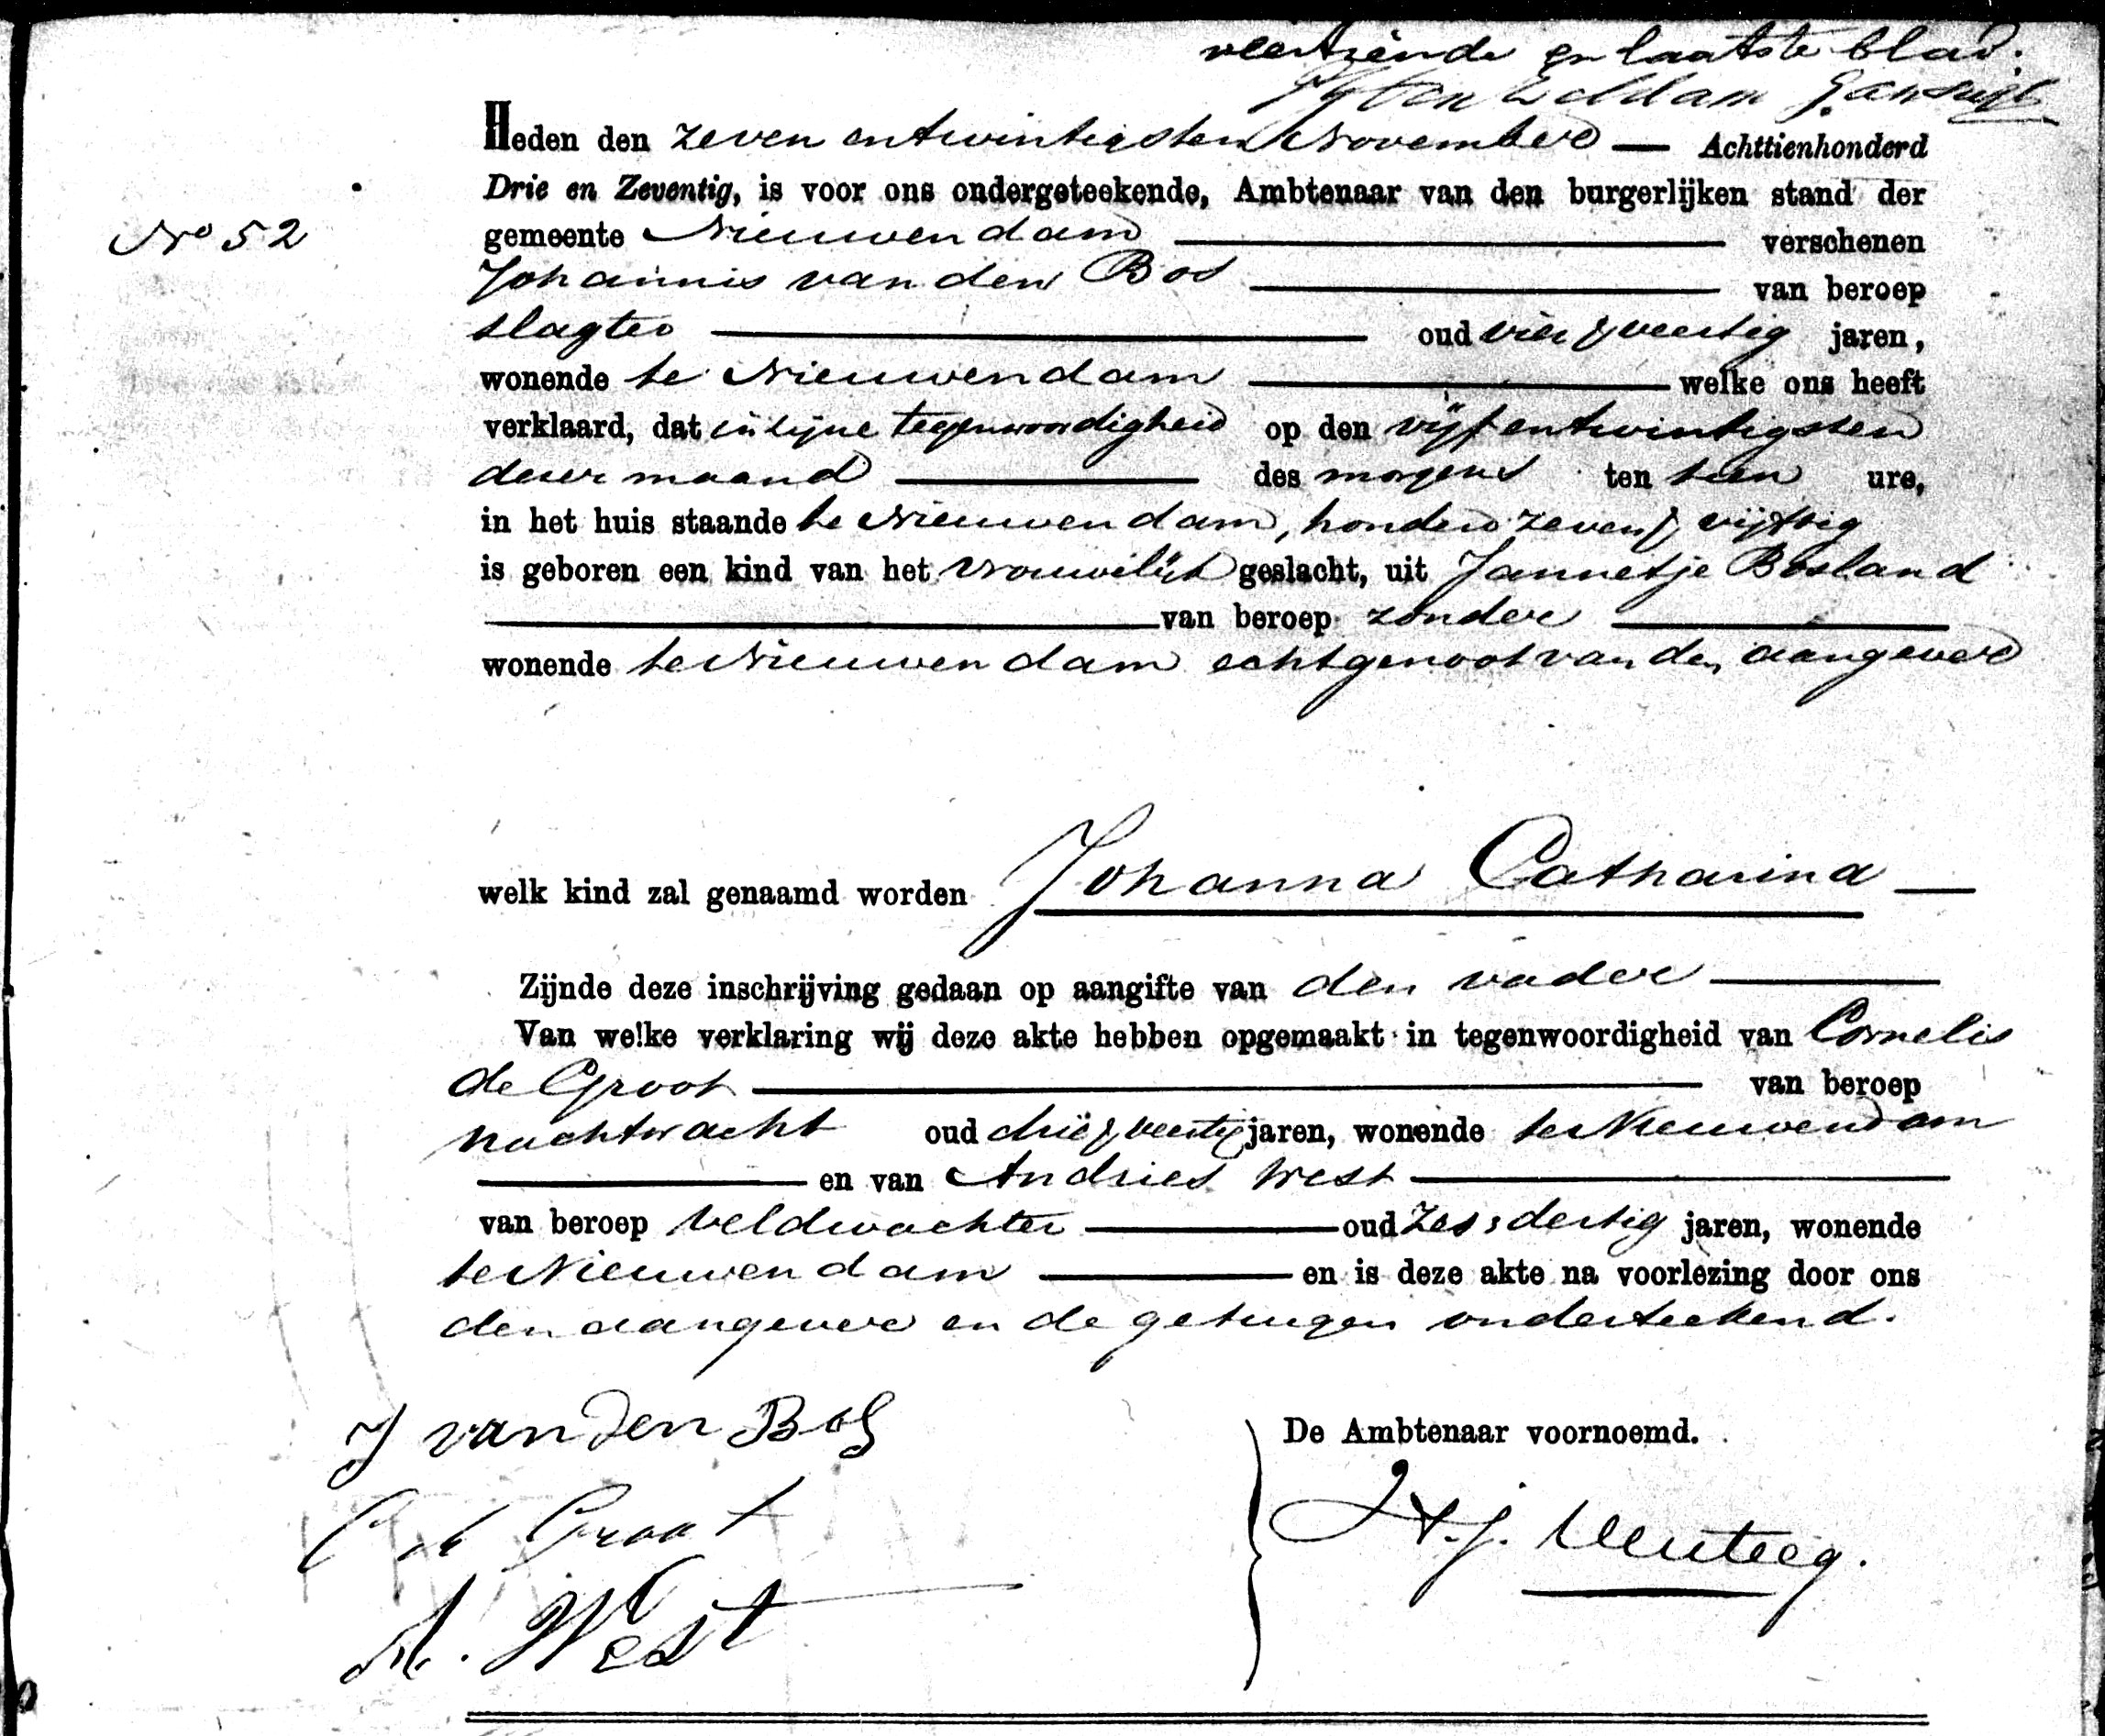 veertiende en laatste blad.
Heden den zeven en twintigsten November — Achttienhonderd
Drie en Zeventig, is voor ons ondergeteekende, Ambtenaar van den burgerlijken stand der
No 52
gemeente Nieuwendam verschenen
Johannis van den Bos van beroep
slagter oud vier & veertig jaren,
wonende te Nieuwendam welke ons heeft
verklaard, dat in zijne tegenwoordigheid op den vijf en twintigsten
dezer maand des morgens ten tien ure,
in het huis staande te Nieuwendam, honderd zeven & vijftig
is geboren een kind van het vrouwelijk geslacht, uit Jannetje Bosland
van beroep zonder
wonende te Nieuwendam echtgenoot van den aangever
welk kind zal genaamd worden Johanna Catharina —
Zijnde deze inschrijving gedaan op aangifte van den vader
Van welke verklaring wij deze akte hebben opgemaakt in tegenwoordigheid van Cornelis
de Groot van beroep
nachtwacht oud drie & veertig jaren, wonende te Nieuwendam
en van Andries West
van beroep veldwachter oud zes & dertig jaren, wonende
te Nieuwendam en is deze akte na voorlezing door ons
den aangever en de getuigen onderteekend.
J van den Bos
De Ambtenaar voornoemd.
C de Groot
A. West